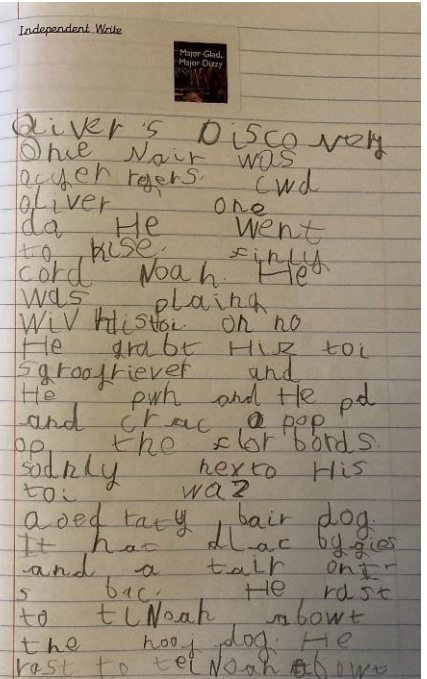 Independent Write
Major Glad,
Major Dizzy
Oliver's Discovery
One Nair was
cwd
oliver one
da He went
to hise. finly
cord Noah. He
was plaing
Wiv His toi. oh no
He grabt His toi
and
He pwh and He pd
and crac a pop
op the flor bords.
sodnly nexto His
toi was
a bair dog.
It had blac by gies
and a tair on it
s bac. He rast
to tel Noah abowt
the hooj dog. He
rast to tel Noah abowt